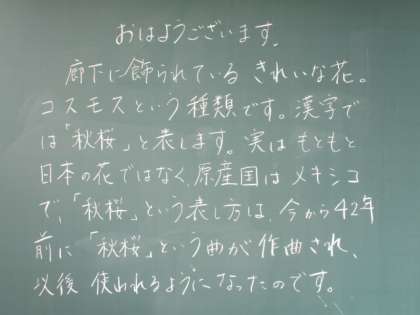 おはようございます。
廊下に飾られている きれいな花。
コスモスという種類です。漢字で
は「秋桜」と表します。実は もともと
日本の花ではなく、原産国は メキシコ
で、「秋桜」という表し方は、今から42年
前に 「秋桜」という曲が 作曲され、
以後 使われるようになったのです。